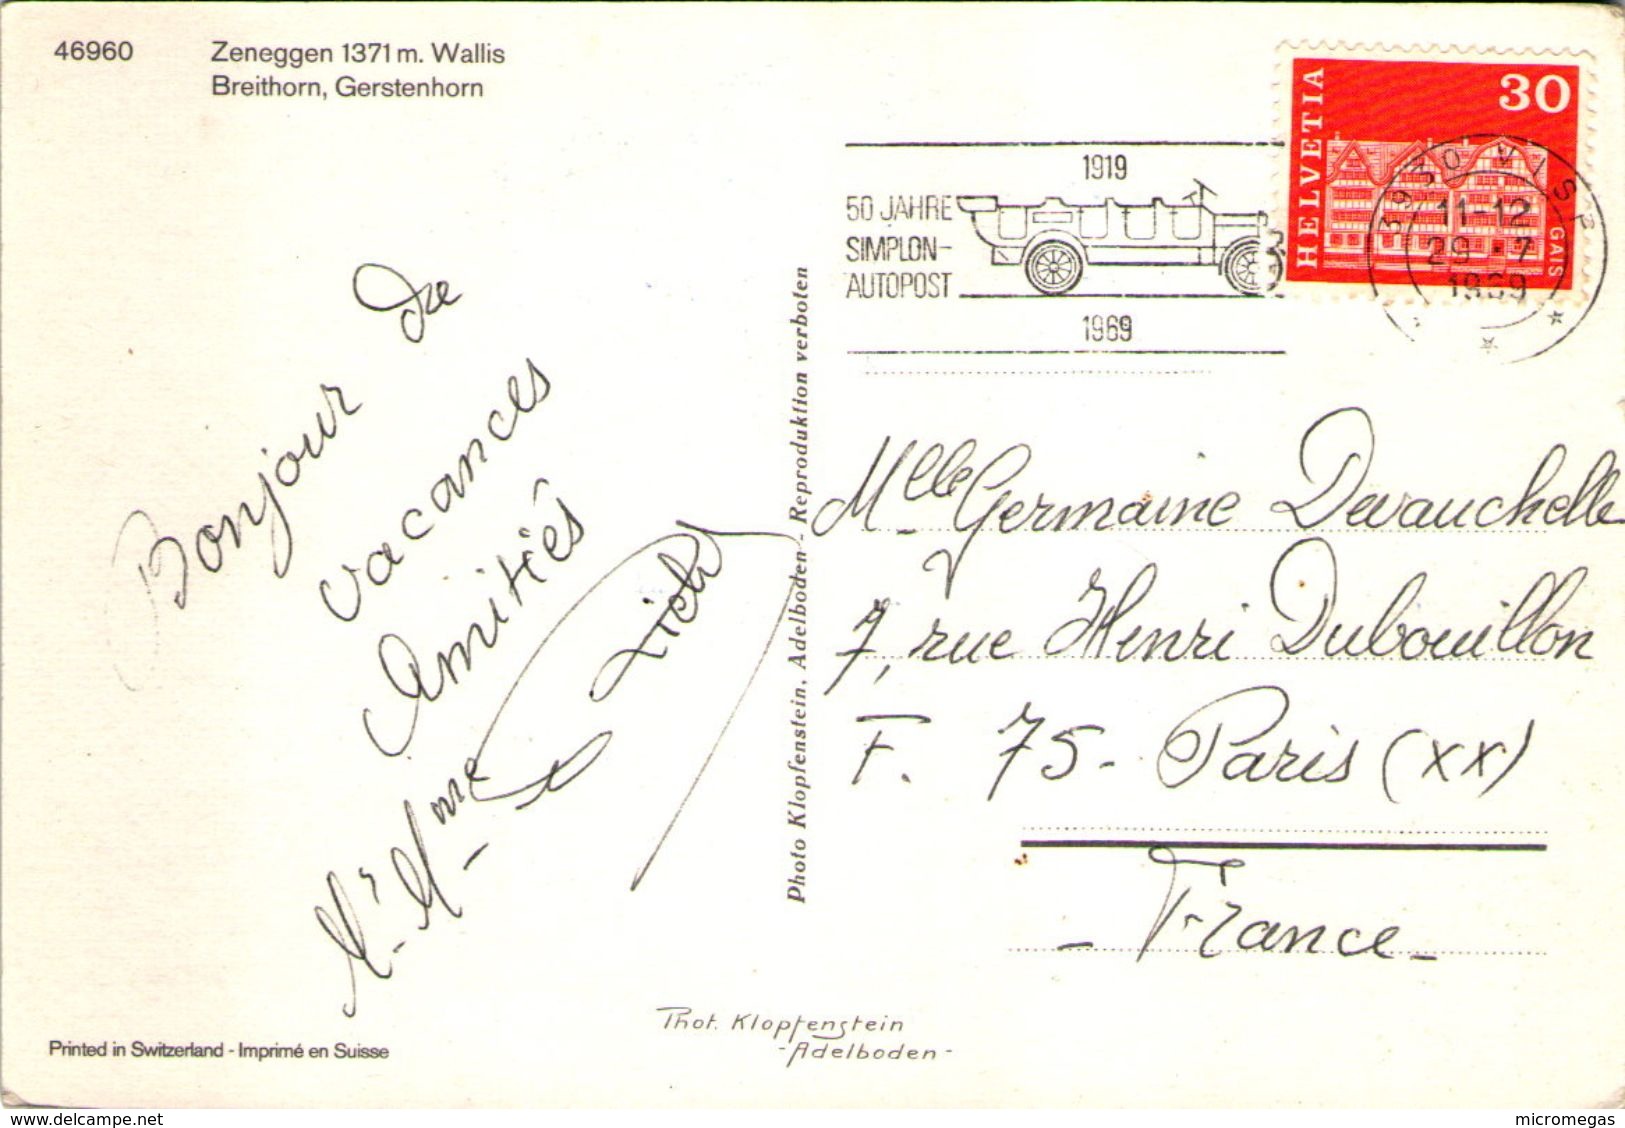 46960 Zeneggen 1371 m. Wallis
Breithorn, Gerstenhorn
HELVETIA
30
GAIS
3930 VISP
11-12
29.-7
1969
1919
50 JAHRE
SIMPLON-
AUTOPOST
1969
Bonjour de
vacances
Amitiés
Mr. Mme
Photo Klopfenstein, Adelboden - Reproduktion verboten
Mlle Germaine Devauchelle
7, rue Henri Dubouillon
F. 75- Paris (XX)
- France -
Phot. Klopfenstein
- Adelboden -
Printed in Switzerland - Imprimé en Suisse
www.delcampe.net
micromegas